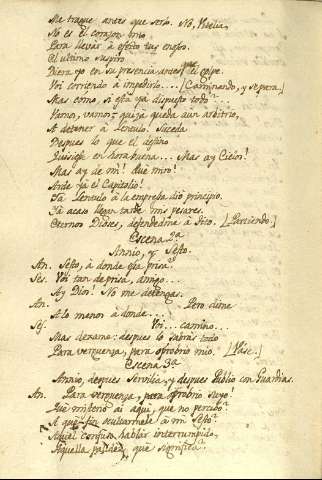 Me trague: antes que sero. No, Vitelia,
No es el corazon mio
Para llevar à efecto tus enojos.
El ultimo suspiro
Diera yo en su presencia antes que el golpe.
Voi corriendo à impedirlo.... [Caminando, y se para.]
Mas cómo, si està ya dispuesto todo?...
Vamos, vamos: quizá queda aun arbitrio,
A detener à Lentulo. Suceda
Despues lo que el destino
Quisiese en hora buena... Mas ay Cielos!
Mas ay de mi! Que miro!
Arde ya el Capitolio!
Ya Lentulo à la empresa dió principio.
Ya acaso llegan tarde mis pesares.
Eternos Dioses, defendedme à Tito. [Partiendo.]
Escena 2ª
Annio, y Sesto.
An. Sesto, à donde qta prisa?
Ses. Voi tan de prisa, amigo...
Ay Dios! No me detengas.
An. Pero dime
A lo menos à donde...
Ses. Voi... camino...
Mas dexame: despues lo sabrás todo
Para verguenza, para oprobrio mio. [Vase.]
Escena 3ª
Annio, despues Servilia, y despues Publio con Guardias.
An. Para verguenza, para oprobrio suyo?
Qué misterio ai aqui, que no percibo?
A qué fin ocultarmele à mi Sesto?
Aquel confuso hablar interrumpido,
Aquella palidez, què significa?